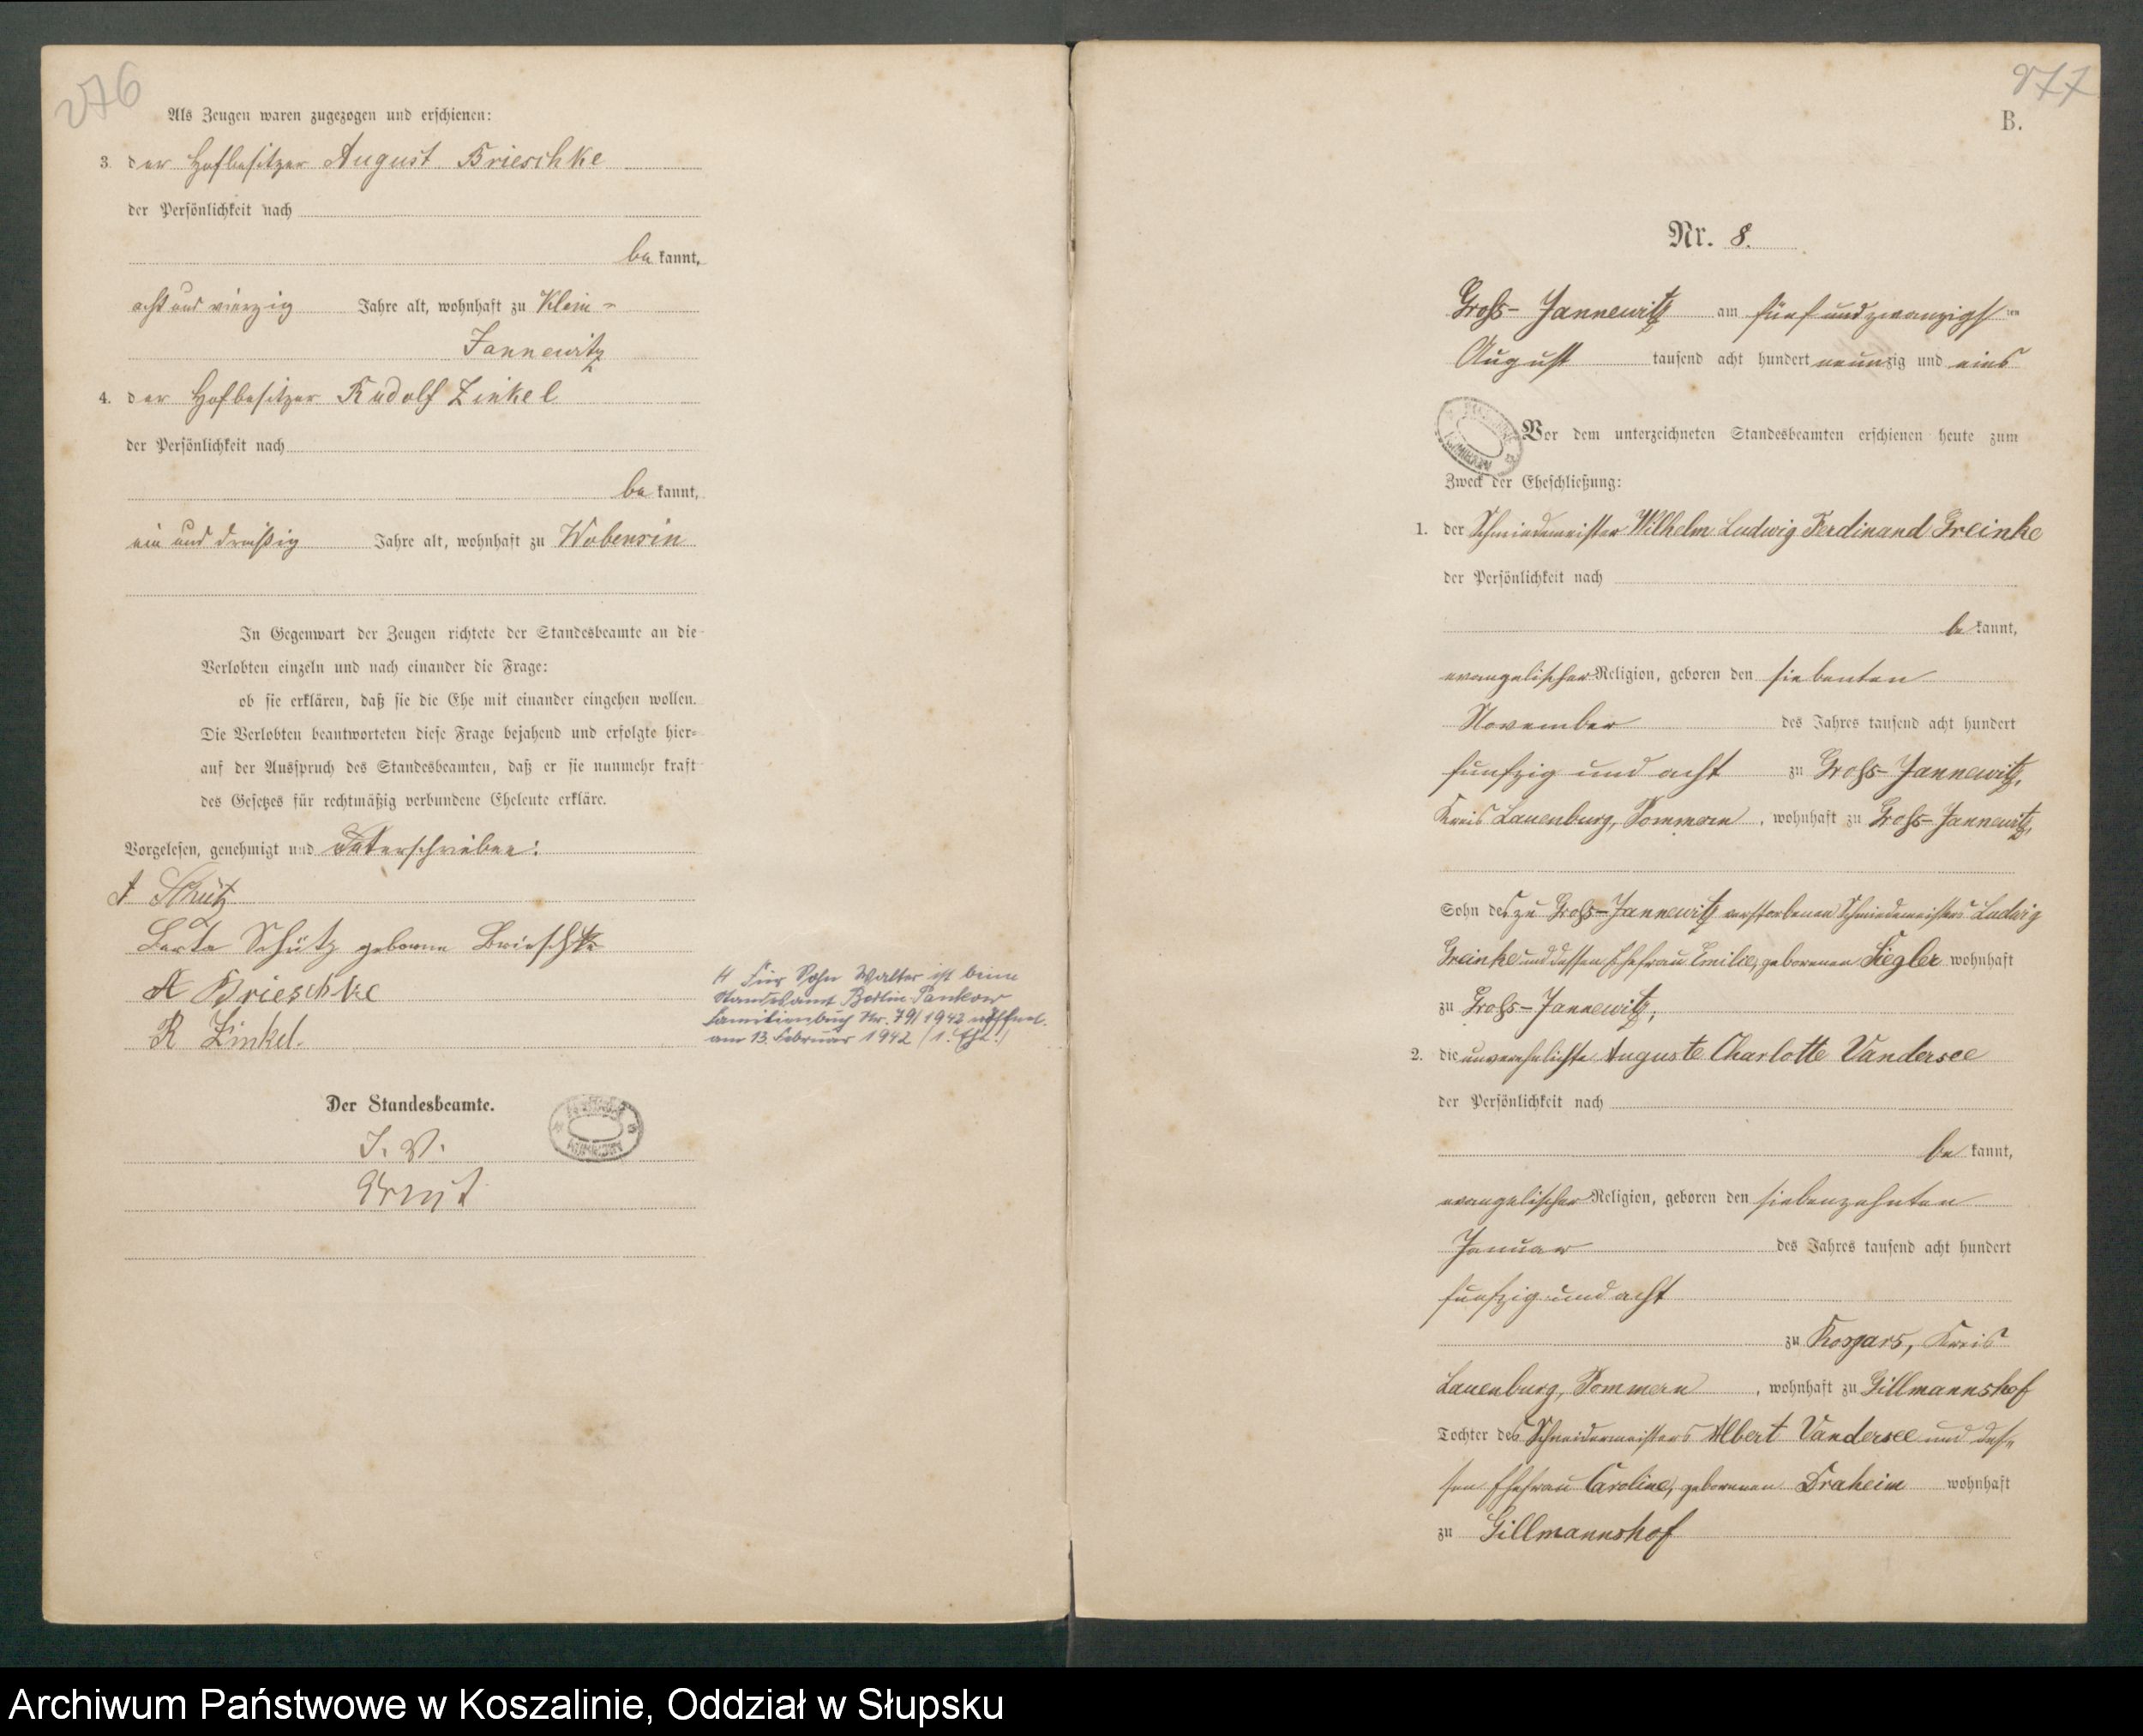 276
Als Zeugen waren zugezogen und erschienen:
3. der Hofbesitzer August Brieschke
der Persönlichkeit nach
be kannt,
acht und vierzig Jahre alt, wohnhaft zu Klein-
Jannewitz
4. der Hofbesitzer Rudolf Zinkel
der Persönlichkeit nach
be kannt,
ein und dreißig Jahre alt, wohnhaft zu Wobensin
In Gegenwart der Zeugen richtete der Standesbeamte an die
Verlobten einzeln und nach einander die Frage:
ob sie erklären, daß sie die Ehe mit einander eingehen wollen.
Die Verlobten beantworteten diese Frage bejahend und erfolgte hier-
auf der Ausspruch des Standesbeamten, daß er sie nunmehr kraft
des Gesetzes für rechtmäßig verbundene Eheleute erkläre.
Vorgelesen, genehmigt und unterschrieben:
A Schütz
Berta Schütz geborene Brieschke
A Brieschke
R Zinkel.
Für Sohn Walter ist beim
Standesamt Berlin-Pankow
Familienbuch Nr. 79/1942 eröffnet.
am 13. Februar 1942 (1. Ehe.)
Der Standesbeamte.
I. V.
277
B.
Nr. 8.
Groß-Jannewitz am fünf und zwanzigsten
August tausend acht hundert neunzig und eins
Vor dem unterzeichneten Standesbeamten erschienen heute zum
Zweck der Eheschließung:
1. der Schmiedemeister Wilhelm Ludwig Ferdinand Greinke
der Persönlichkeit nach
be kannt,
evangelischer Religion, geboren den siebenten
November des Jahres tausend acht hundert
fünfzig und acht zu Groß-Jannewitz,
Kreis Lauenburg, Pommern, wohnhaft zu Groß-Jannewitz,
Sohn des zu Groß-Jannewitz verstorbenen Schmiedemeisters Ludwig
Greinke und dessen Ehefrau Emilie, geborenen Fiegler wohnhaft
zu Groß-Jannewitz,
2. die unverehelichte Auguste Charlotte Vandersee
der Persönlichkeit nach
be kannt,
evangelischer Religion, geboren den siebenzehnten
Januar des Jahres tausend acht hundert
fünfzig und acht
zu Rosgars, Kreis
Lauenburg, Pommern, wohnhaft zu Gillmannshof
Tochter des Schneidermeisters Albert Vandersee und des-
sen Ehefrau Caroline, geborenen Draheim wohnhaft
zu Gillmannshof
Archiwum Państwowe w Koszalinie, Oddział w Słupsku